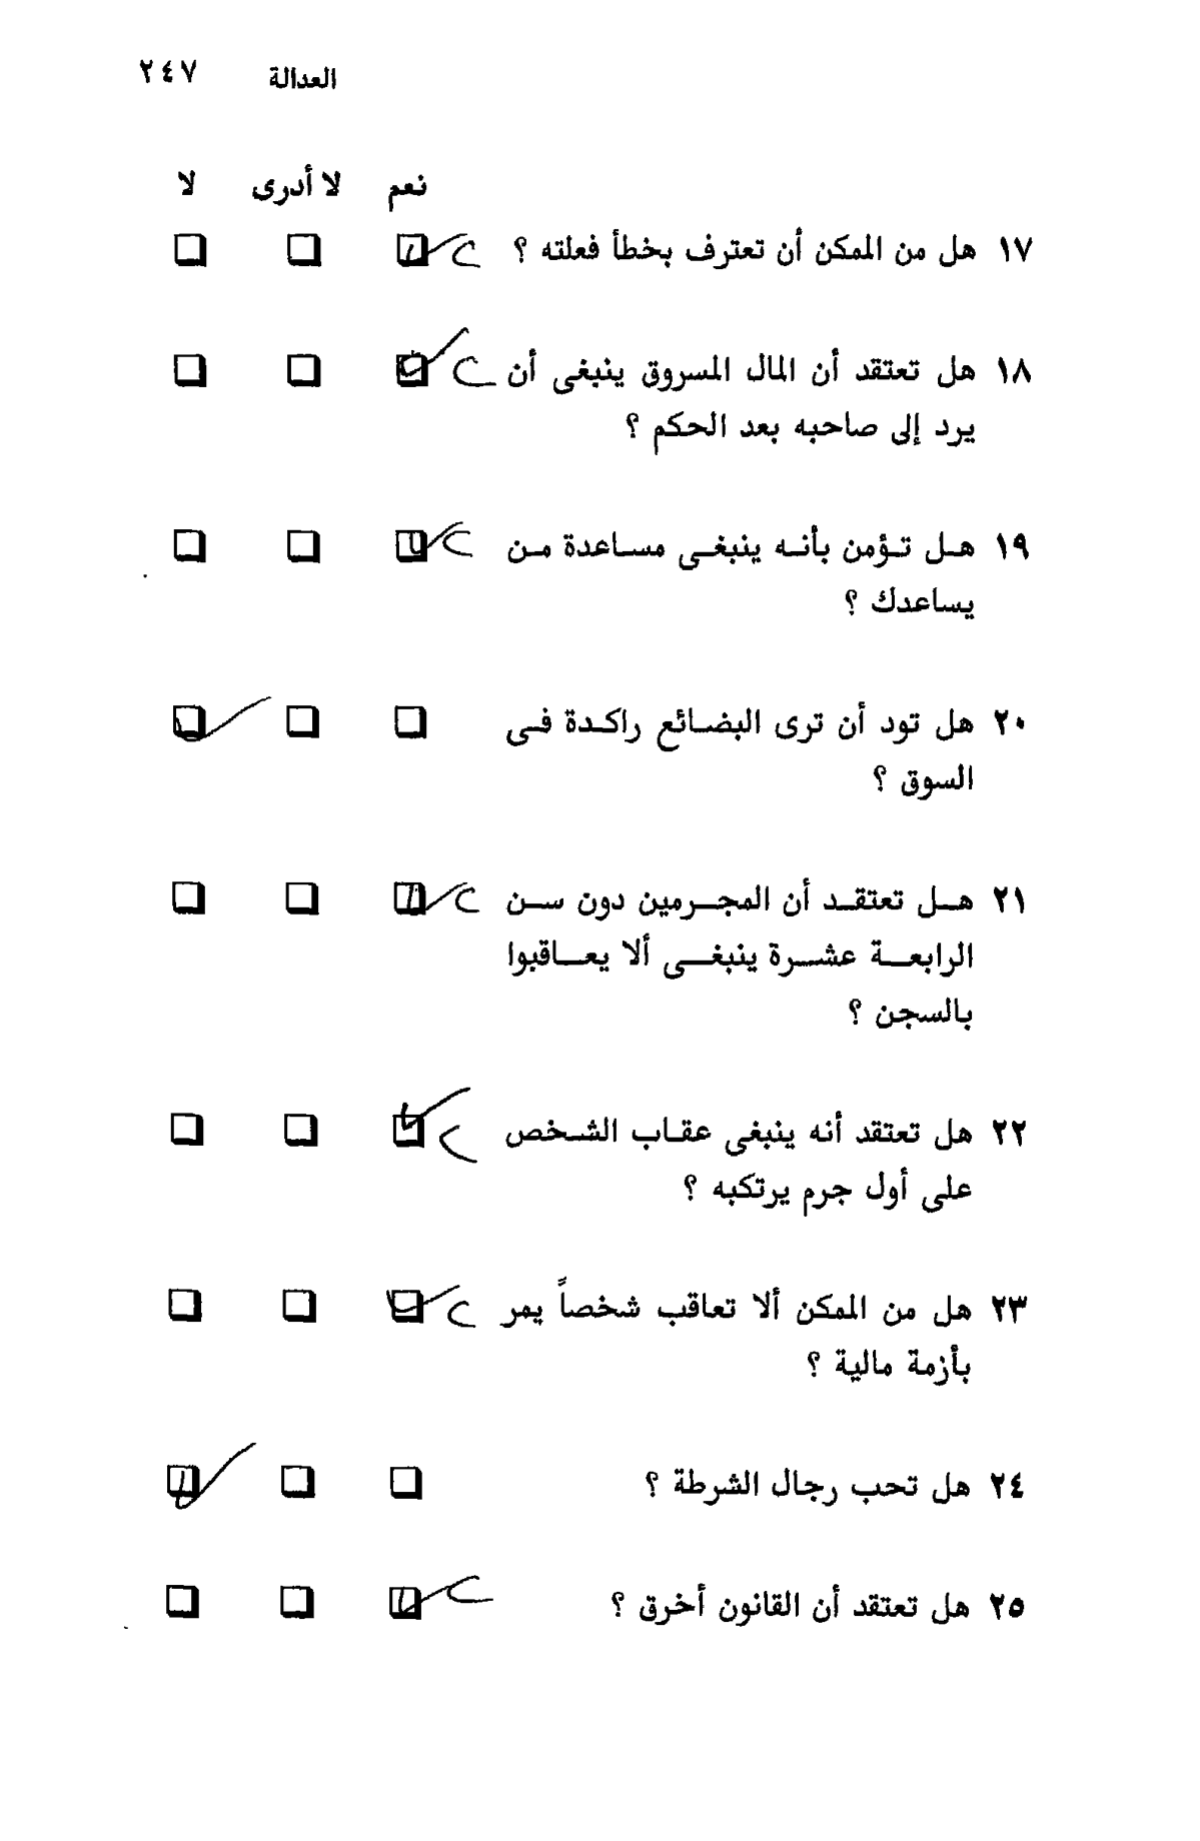 العدالة ٢٤٧
نعم لا أدرى لا
١٧ هل من الممكن أن تعترف بخطأ فعلته ؟
١٨ هل تعتقد أن المال المسروق ينبغى أن
يرد إلى صاحبه بعد الحكم ؟
١٩ هـل تـؤمن بأنـه ينبغـى مسـاعدة مـن
يساعدك ؟
٢٠ هل تود أن ترى البضـائع راكـدة فـى
السوق ؟
٢١ هـل تعتقـد أن المجـرمين دون سـن
الرابعـة عشـرة ينبغـى ألا يعـاقبوا
بالسجن ؟
٢٢ هل تعتقد أنه ينبغى عقـاب الشـخص
على أول جرم يرتكبه ؟
٢٣ هل من الممكن ألا تعاقب شخصاً يمر
بأزمة مالية ؟
٢٤ هل تحب رجال الشرطة ؟
٢٥ هل تعتقد أن القانون أخرق ؟